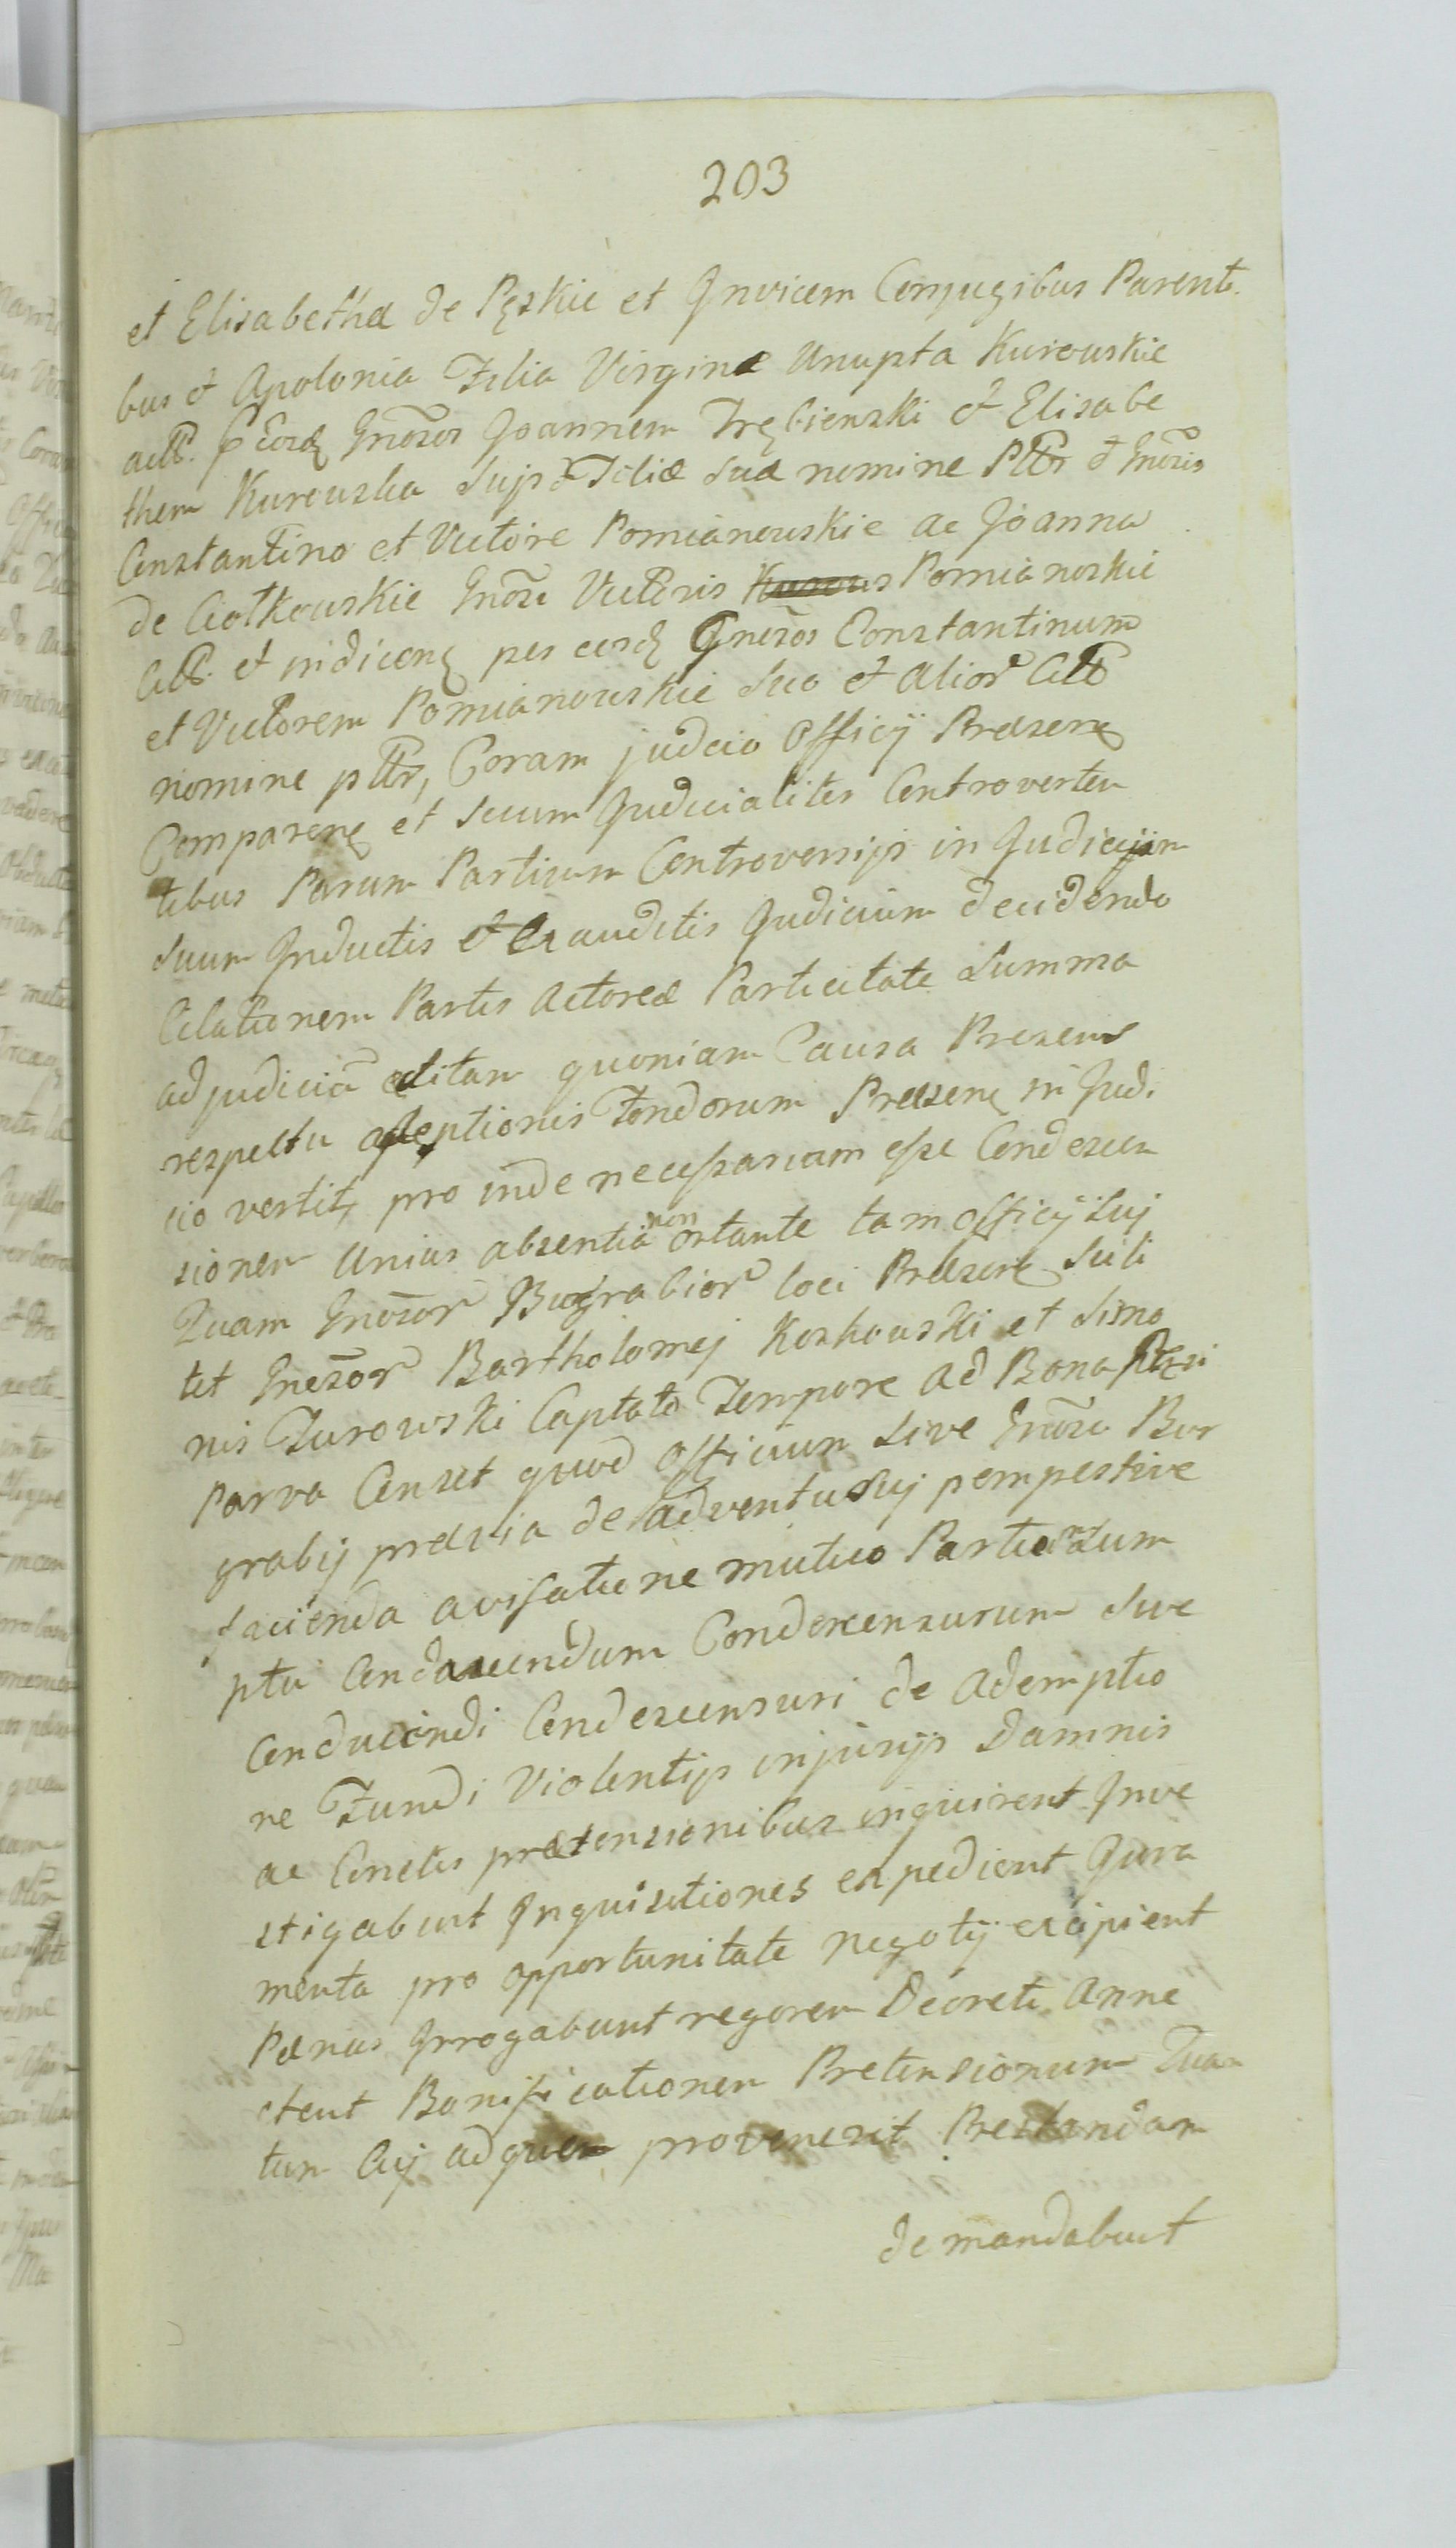 203
et Elisabetha de Pęskie et Invicem Conjugibus Parenti
bus et Apolonia Filia Virgine Unupta Kurowskie
actt. p eosd Gnõsos Joannem Trębienski et Elisabe
them Kurowska Sup Filiæ suæ nomine Pttr et Gnõsis
Constantino et Victore Pomianowskie ac Joanna
de Ciotkowskie Gnõsi Victoris Pomianoskie
Citt. et pridicenę per eosd Gnesos Constantinum
et Victorem Pomianowskie suo et alior Citt
nomine pttr, Coram judcio Officij Præsenę
Comparenę et secum Judicialiter Controverten
tibus Parum Partium Controversijs in Judicijum
suum Inductis et Exauditis Judicium decidendo
Citationem Partis Actoreæ Particitate Summa
ad judiciã editam quoniam Causa Presens
respectu ademptionis Fondorum Præsenę in Judi
cio vertit, pro inde necessariam esse Condescen
sionem Unius absentia non ostante tam Officij Suj
Quam Gnõsor Burgrabior loci Præsenę scili
tet Gnesor Bartholomej Koskowski et Simo
nis Turowski Captato Tempore ad Bona Pęski
Parva Censet quod Officium sive Gnõsi Bur
grabij prævia de adventu Suj pempestive
facienda avisatione mutuo Partior Sum
ptu Condascendum Condescensurum sive
Conducendi Condescensuri de Ademptio
ne Fundi Violentijs injurijs Damnis
ac Cunctis prætensionibus inquirent Inve
stigabunt Inquisitiones expedient Jura
menta pro opportunitate negotij excipient
Pænas Irrogabunt regorem Decreti Anne
ctent Bonificationem Pretensionum Quan
tum Cuj ad quem provenerit Prestandam
de mandabunt